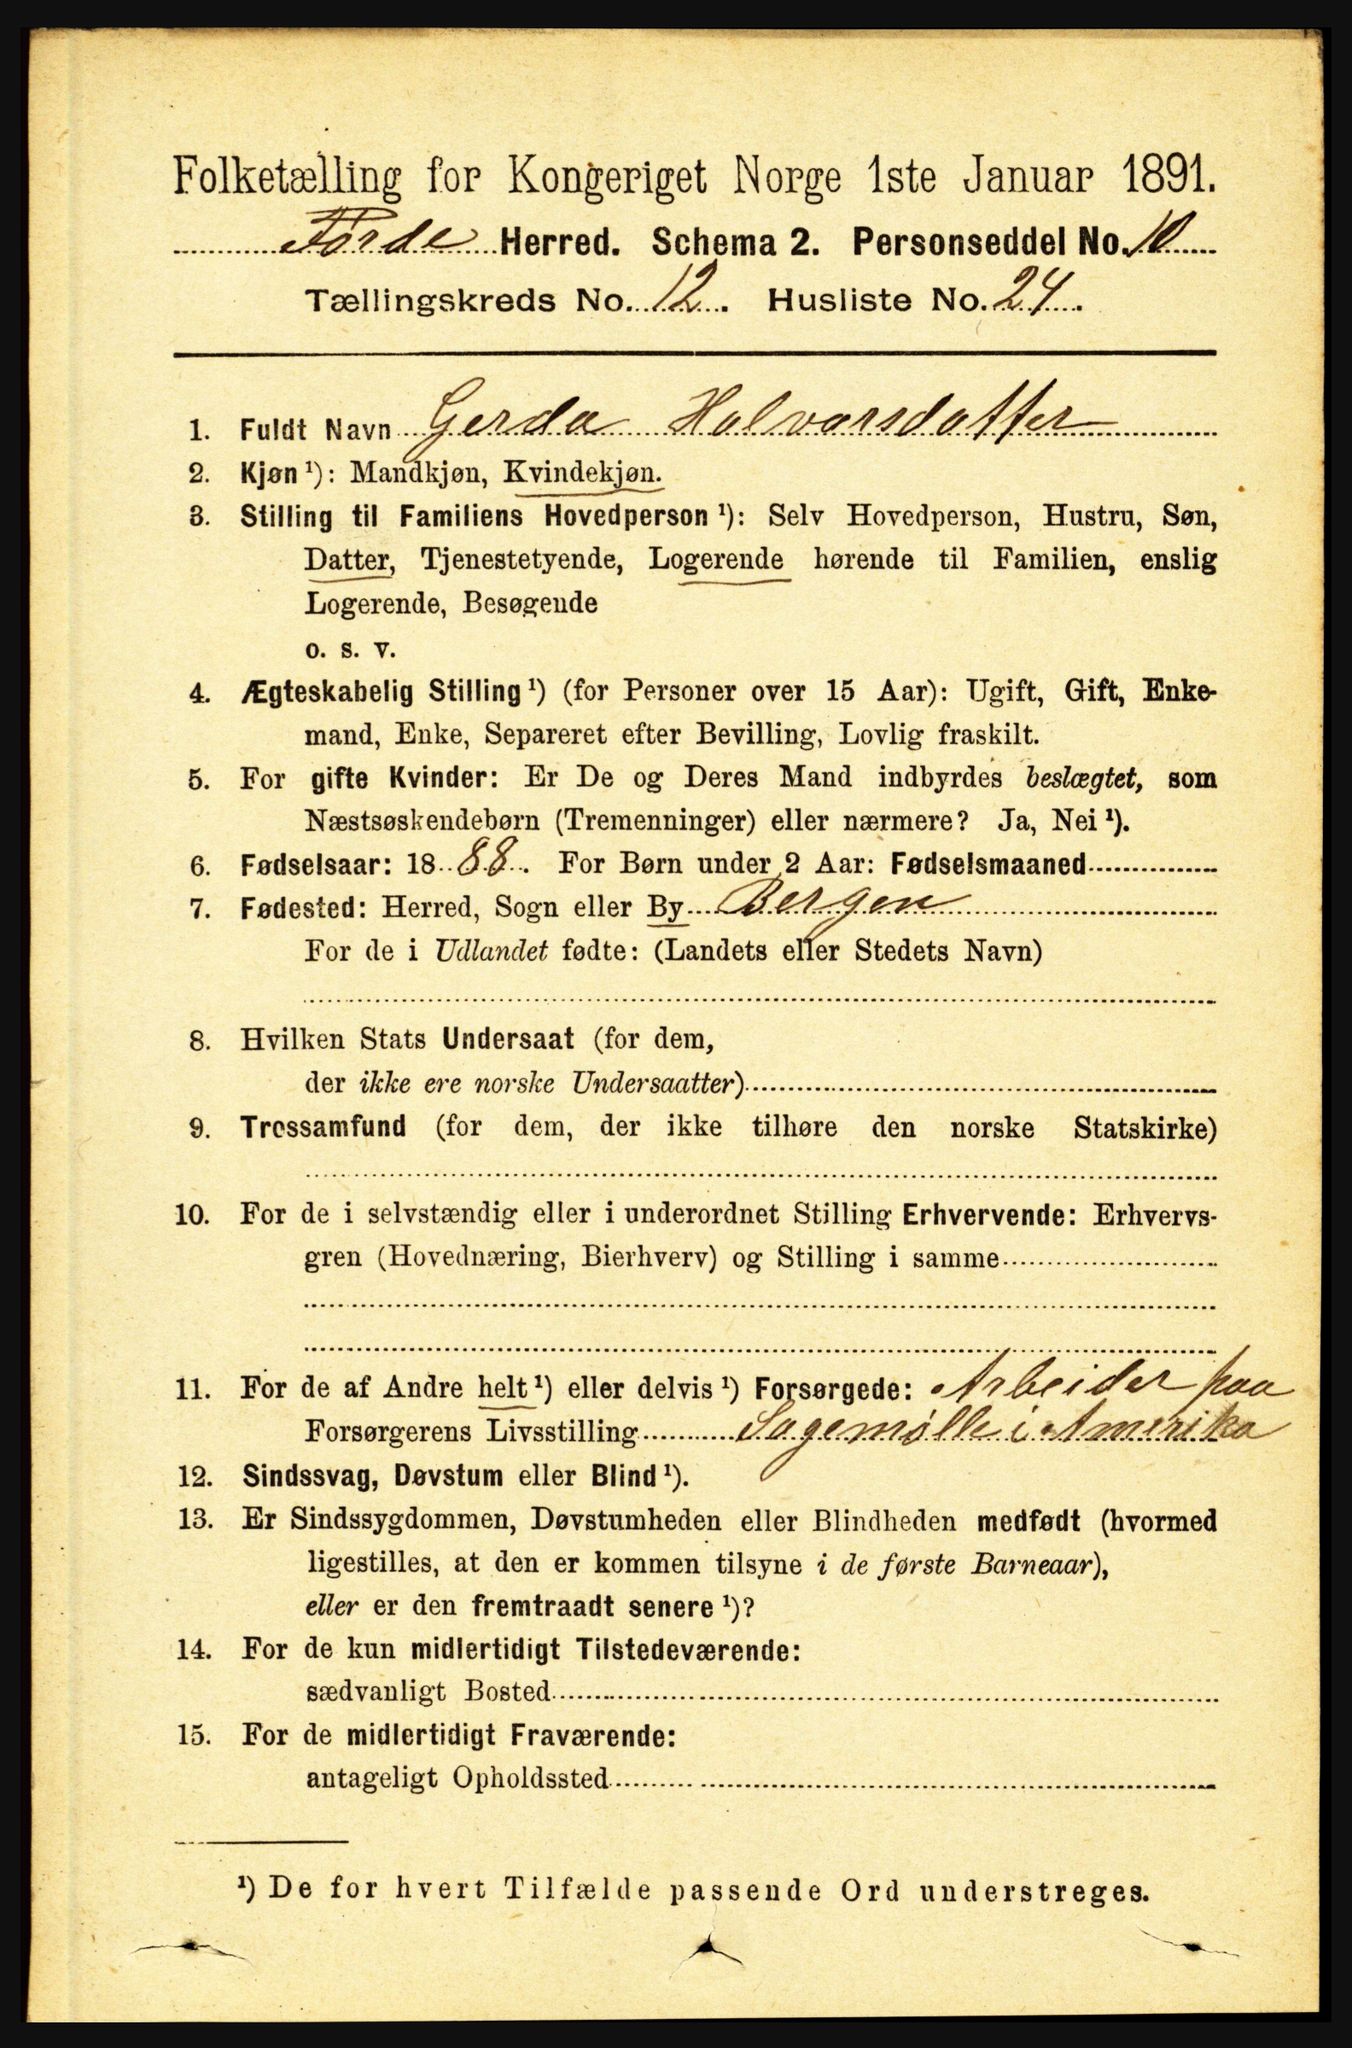 Folketælling for Kongeriget Norge 1ste Januar 1891.
Førde Herred. Schema 2. Personseddel No. 10
Tællingskreds No. 12. Husliste No. 24.
1. Fuldt Navn Gerda Halvorsdatter
2. Kjøn ¹): Mandkjøn, Kvindekjøn.
3. Stilling til Familiens Hovedperson ¹): Selv Hovedperson, Hustru, Søn,
Datter, Tjenestetyende, Logerende hørende til Familien, enslig
Logerende, Besøgende
o. s. v.
4. Ægteskabelig Stilling ¹) (for Personer over 15 Aar): Ugift, Gift, Enke-
mand, Enke, Separeret efter Bevilling, Lovlig fraskilt.
5. For gifte Kvinder: Er De og Deres Mand indbyrdes beslægtet, som
Næstsøskendebørn (Tremenninger) eller nærmere? Ja, Nei ¹).
6. Fødselsaar: 18 88. For Børn under 2 Aar: Fødselsmaaned
7. Fødested: Herred, Sogn eller By Bergen
For de i Udlandet fødte: (Landets eller Stedets Navn)
8. Hvilken Stats Undersaat (for dem,
der ikke ere norske Undersaatter)
9. Trossamfund (for dem, der ikke tilhøre den norske Statskirke)
10. For de i selvstændig eller i underordnet Stilling Erhvervende: Erhvervs-
gren (Hovednæring, Bierhverv) og Stilling i samme
11. For de af Andre helt ¹) eller delvis ¹) Forsørgede: Arbeider paa
Forsørgerens Livsstilling Sagemølle i Amerika
12. Sindssvag, Døvstum eller Blind ¹).
13. Er Sindssygdommen, Døvstumheden eller Blindheden medfødt (hvormed
ligestilles, at den er kommen tilsyne i de første Barneaar),
eller er den fremtraadt senere ¹)?
14. For de kun midlertidigt Tilstedeværende:
sædvanligt Bosted
15. For de midlertidigt Fraværende:
antageligt Opholdssted
¹) De for hvert Tilfælde passende Ord understreges.